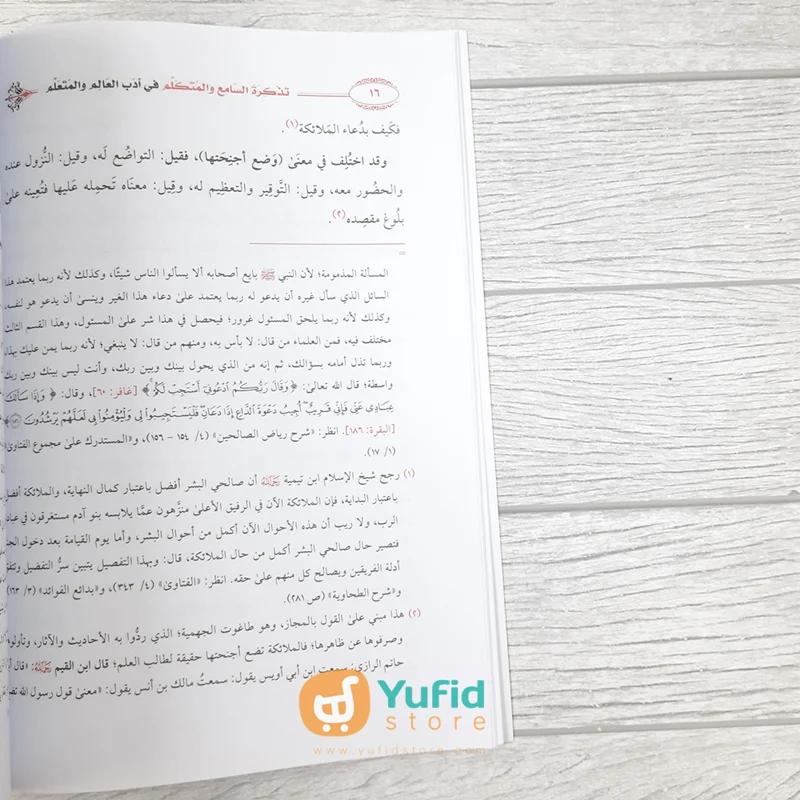 تذكرة السامع والمتكلم في أدب العالم والمتعلم
١٦
فكَيف بدُعاء المَلائكة(١).
وقد اختُلِف في معنَىٰ (وَضع أجنِحَتها)، فقيل: التواضُع لَه، وقيل: النُّزول عنده
والحضُور معه، وقيل: التَّوقِير والتعظِيم له، وقِيل: معنَاه تَحمِله عَليها فتُعِينه علىٰ
بلُوغ مقصِده(٢).
=
المسألة المذمومة؛ لأن النبي ﷺ بايع أصحابه ألا يسألوا الناس شيئًا، وكذلك لأنه ربما يعتمد هذا
السائل الذي سأل غيره أن يدعو له ربما يعتمد علىٰ دعاء هذا الغير وينسىٰ أن يدعو هو لنفسه،
وكذلك لأنه ربما يلحق المسئول غرور؛ فيحصل في هذا شر علىٰ المسئول، وهذا القسم الثالث
مختلف فيه، فمن العلماء من قال: لا بأس به، ومنهم من قال: لا ينبغي؛ لأنه ربما يمن عليك بهذا،
وربما تذل أمامه بسؤالك، ثم إنه من الذي يحول بينك وبين ربك، وأنت ليس بينك وبين ربك
واسطة؛ قال الله تعالىٰ: ﴿وَقَالَ رَبُّكُمُ ادْعُونِي أَسْتَجِبْ لَكُمْ﴾ [غافر: ٦٠]، وقال: ﴿وَإِذَا سَأَلَكَ
عِبَادِي عَنِّي فَإِنِّي قَرِيبٌ أُجِيبُ دَعْوَةَ الدَّاعِ إِذَا دَعَانِ فَلْيَسْتَجِيبُوا لِي وَلْيُؤْمِنُوا بِي لَعَلَّهُمْ يَرْشُدُونَ﴾
[البقرة: ١٨٦]. انظر: «شرح رياض الصالحين» (٤/ ١٥٤ - ١٥٦)، و«المستدرك علىٰ مجموع الفتاوىٰ»
(١/ ١٧).
(١) رجح شيخ الإسلام ابن تيمية رحمه الله أن صالحي البشر أفضل باعتبار كمال النهاية، والملائكة أفضل
باعتبار البداية، فإن الملائكة الآن في الرفيق الأعلىٰ منزَّهون عمَّا يلابسه بنو آدم مستغرقون في
الرب، ولا ريب أن هذه الأحوال الآن أكمل من أحوال البشر، وأما يوم القيامة بعد دخول
فتصير حال صالحي البشر أكمل من حال الملائكة، قال: وبهذا التفصيل يتبين سرُّ التفضيل
أدلة الفريقين ويصالح كل منهم علىٰ حقه. انظر: «الفتاوىٰ» (٤/ ٣٤٣)، و«بدائع الفوائد» (٣/ ١٦٣)
و«شرح الطحاوية» (ص ٢٨١).
(٢) هذا مبني علىٰ القول بالمجاز، وهو طاغوت الجهمية؛ الذي ردُّوا به الأحاديث والآثار، وتأولوه
وصرفوها عن ظاهرها؛ فالملائكة تضع أجنحتها حقيقة لطالب العلم؛ قال ابن القيم رحمه الله: «قال
حاتم الرازي: سمعت ابن أبي أويس يقول: سمعتُ مالك بن أنس يقول: «معنىٰ قول رسول الله
Yufid
store
www.yufidstore.com